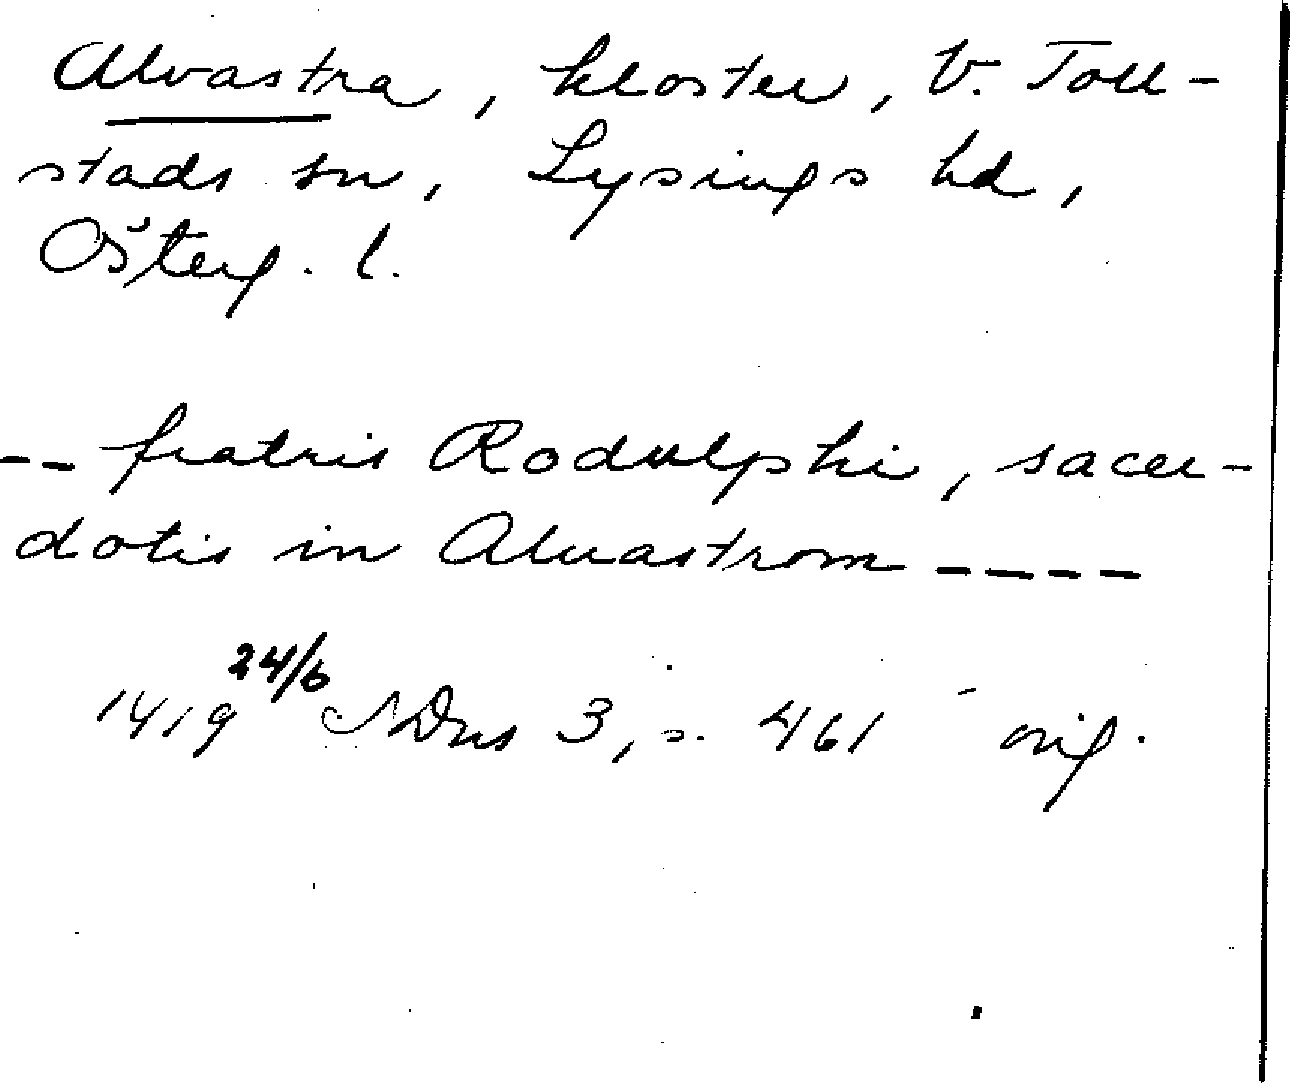 Alvastra, kloster, V. Toll-
stads sn, Lysings hd,
Österg. l.
-- fratris Rodulphi, sacer-
dotis in Aluastrom ----
1419 24/6 NDns 3, s. 461 orig.